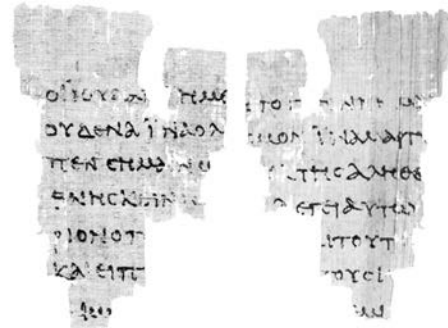 ΟΙΙΟΥΔΑΙ ΗΜΕ
ΟΥΔΕΝΑΪΝΑΟΛ
ΠΕΝCΗΜΑΙΝΩ
ΘΝΗCΚΕΙΝ
ΡΙΟΝΟΠ
ΚΑΙΕΙΠ
ΑΙω
ΤΟΓ ΝΝΗΜΑΙ
CΜΟΝΪΝΑΜΑΡΤΥ
ΤΗCΑΛΗΘΕ
ΛΕΓΕΙΑΥΤΩ
ΑΙΤΟΥΤ
ΤΟΥCΙ